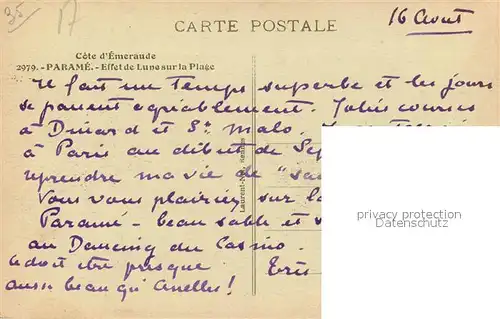 35
17
CARTE POSTALE
16 Aout
Côte d'Émeraude
2979. - PARAMÉ. - Effet de Lune sur la Plage
Il fait un temps superbe et les jours
se passent agréablement. Jolies courses
à Dinard et St Malo.
à Paris au début de Sep
reprendre ma vie de "
Vous vous plairiez sur la
Paramé - beau sable et
au Dancing du Casino.
Ce doit être presque Très
aussi beau qu'
Laurent-Nel, Rennes
privacy protection
RANSICHTSKARTEN.DE